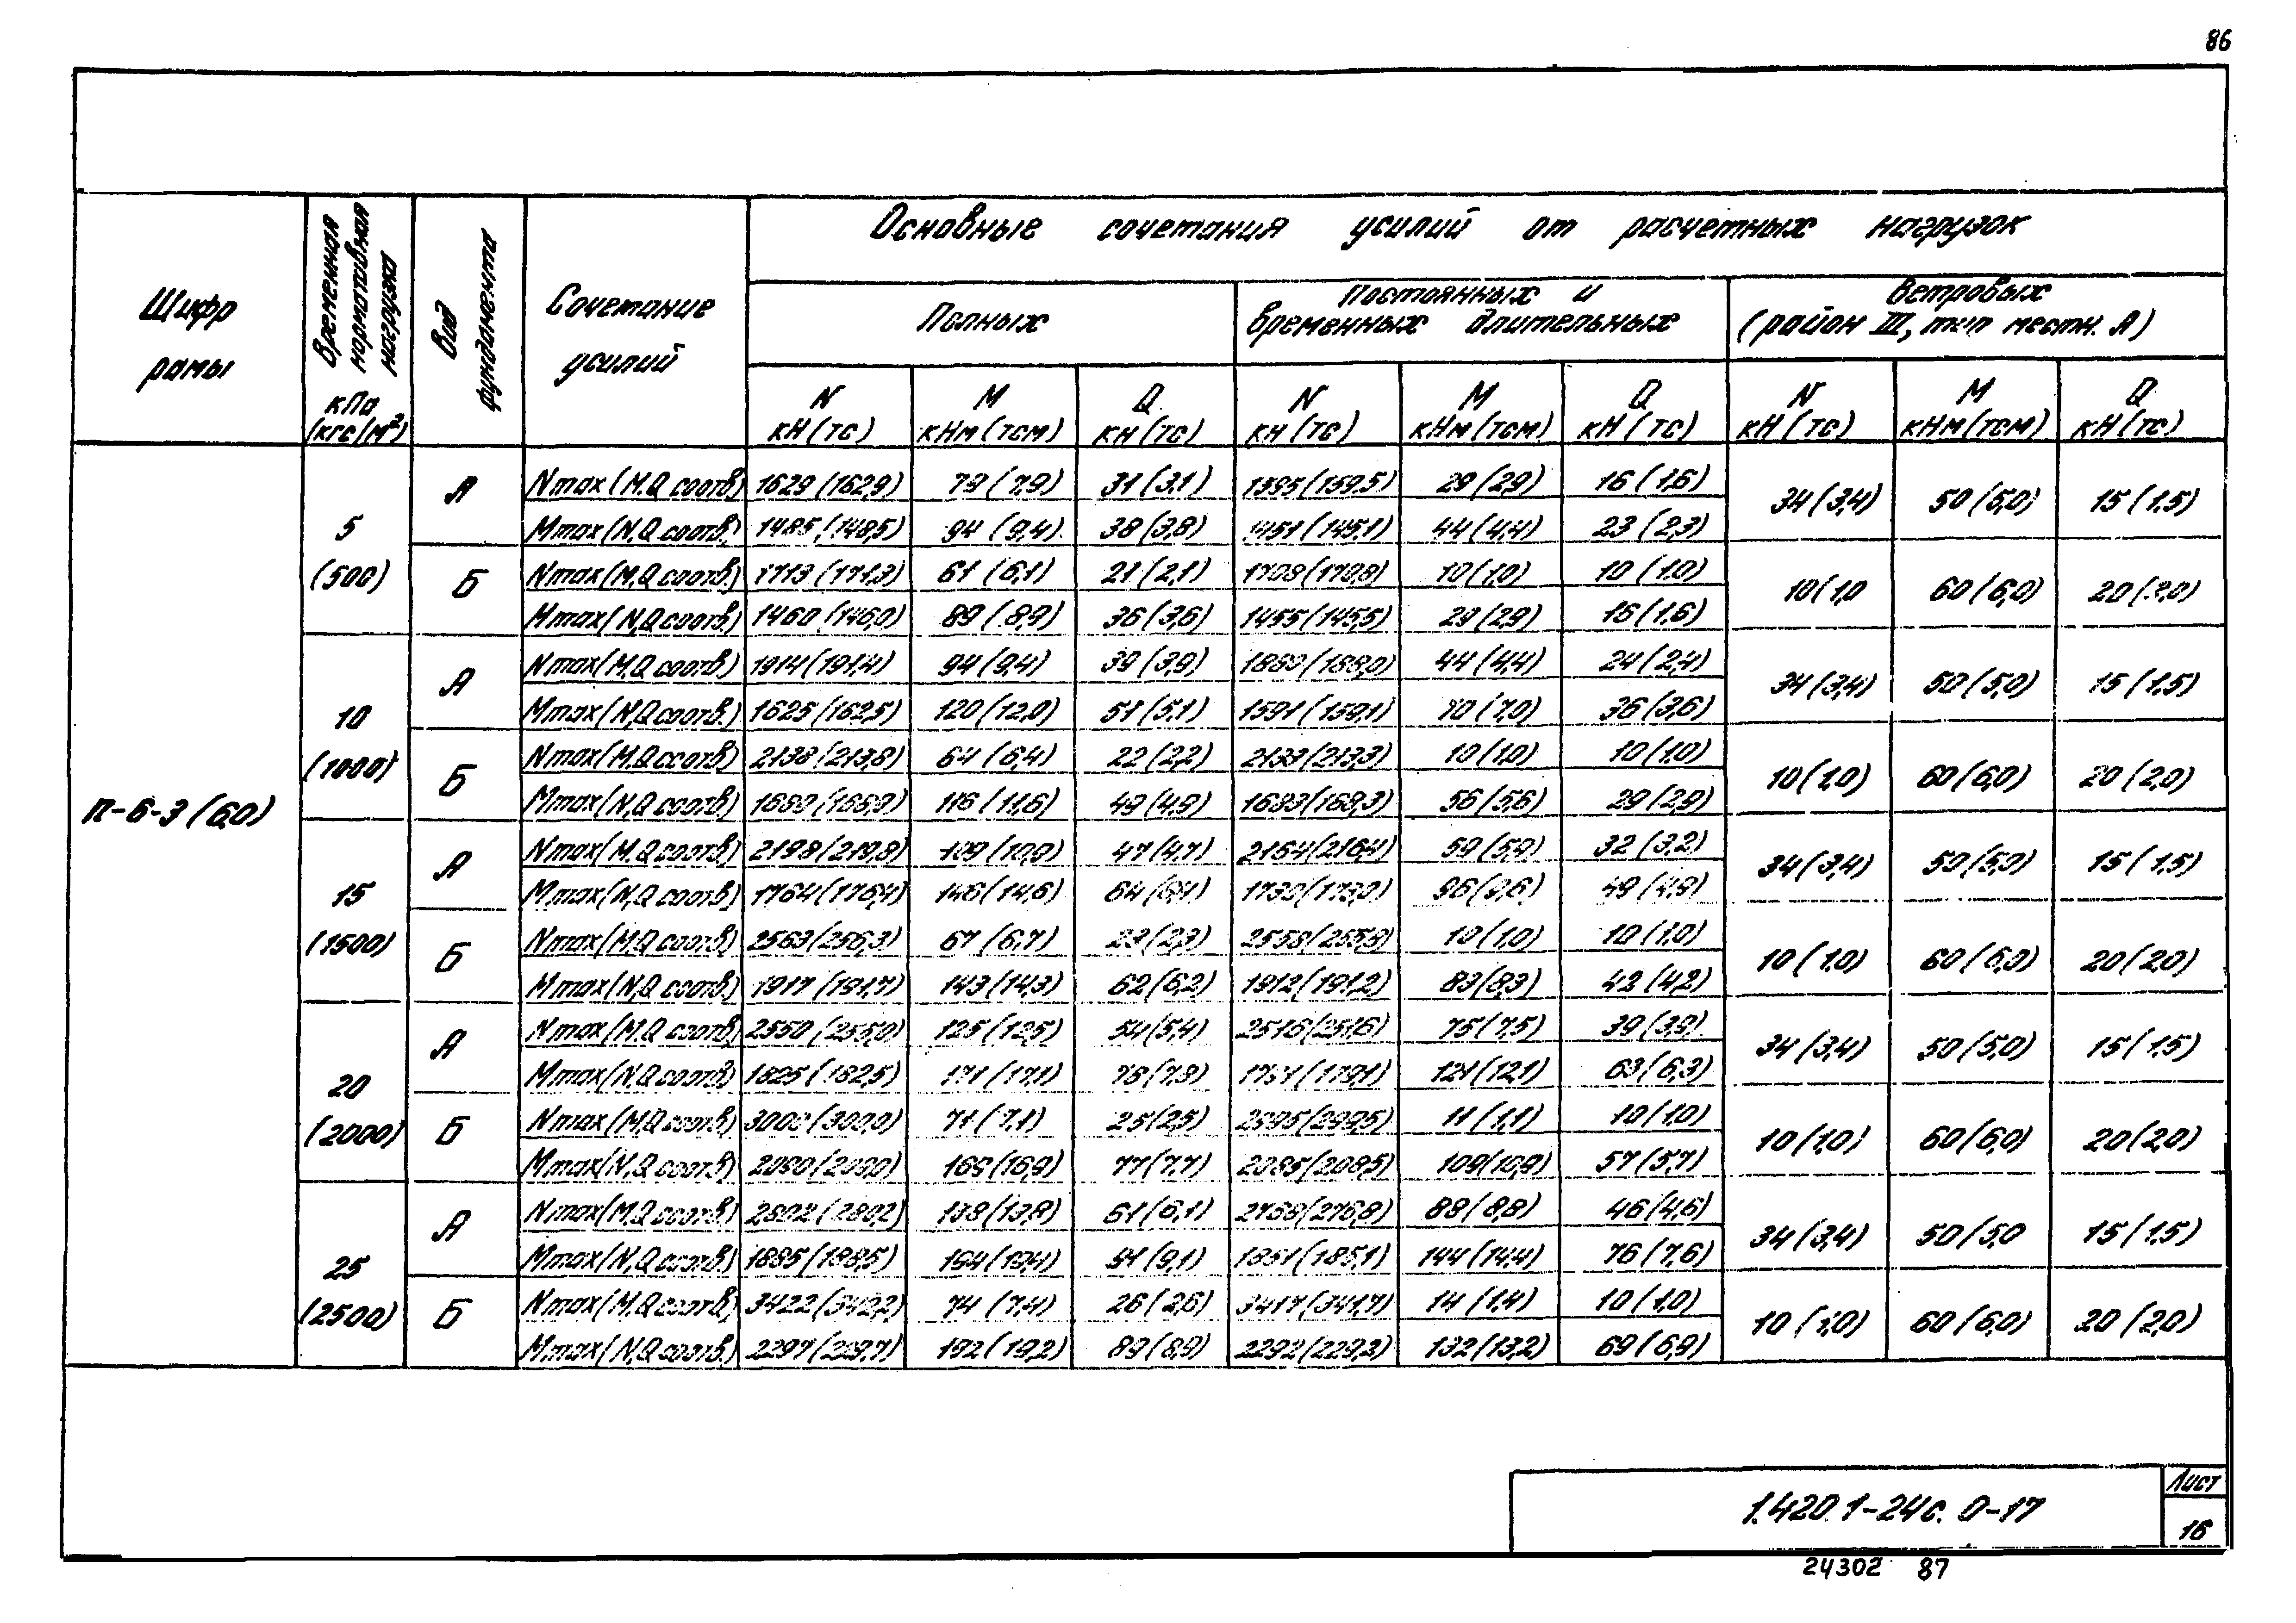 86
Основные сочетания усилий от расчетных нагрузок
Шифр рамы
Временная нормативная нагрузка кПа (кгс/м²)
Вид фундамента
Сочетание усилий
Полных
Постоянных и временных длительных
Ветровых (район III, тип местн. А)
N кН (тс) M кНм (тсм) Q кН (тс) N кН (тс) M кНм (тсм) Q кН (тс) N кН (тс) M кНм (тсм) Q кН (тс)
П-6-3 (6,0)
5 (500) А Nmax (M.Q соотв) 1629 (162,9) 79 (7,9) 31 (3,1) 1595 (159,5) 29 (2,9) 16 (1,6) 34 (3,4) 50 (5,0) 15 (1,5)
Mmax (N,Q соотв.) 1485 (148,5) 94 (9,4) 38 (3,8) 1451 (145,1) 44 (4,4) 23 (2,3)
Б Nmax (M,Q соотв.) 1713 (171,3) 61 (6,1) 21 (2,1) 1708 (170,8) 10 (1,0) 10 (1,0) 10 (1,0 60 (6,0) 20 (2,0)
Mmax (N,Q соотв.) 1460 (146,0) 89 (8,9) 36 (3,6) 1455 (145,5) 29 (2,9) 16 (1,6)
10 (1000) А Nmax (M,Q соотв.) 1914 (191,4) 94 (9,4) 39 (3,9) 1880 (188,0) 44 (4,4) 24 (2,4) 34 (3,4) 50 (5,0) 15 (1,5)
Mmax (N,Q соотв.) 1625 (162,5) 120 (12,0) 51 (5,1) 1591 (159,1) 70 (7,0) 36 (3,6)
Б Nmax (M,Q соотв) 2138 (213,8) 64 (6,4) 22 (2,2) 2133 (213,3) 10 (1,0) 10 (1,0) 10 (1,0) 60 (6,0) 20 (2,0)
Mmax (N,Q соотв.) 116 (11,6) 49 (4,9) 1683 (168,3) 56 (5,6) 29 (2,9)
15 (1500) А Nmax (M.Q соотв.) 2198 (219,8) 109 (10,9) 47 (4,7) 2164 (216,4) 59 (5,9) 32 (3,2) 34 (3,4) 50 (5,0) 15 (1,5)
Mmax (N,Q соотв) 1764 (176,4) 146 (14,6) 64 (6,4) 1730 (173,0) 96 (9,6) 49 (4,9)
Б Nmax (M,Q соотв.) 2563 (256,3) 67 (6,7) 23 (2,3) 2558 (255,8) 10 (1,0) 10 (1,0) 10 (1,0) 60 (6,0) 20 (2,0)
Mmax (N,Q соотв.) 1917 (191,7) 143 (14,3) 62 (6,2) 1912 (191,2) 83 (8,3) 42 (4,2)
20 (2000) А Nmax (M.Q соотв.) 2550 (255,0) 125 (12,5) 54 (5,4) 2516 (251,6) 75 (7,5) 39 (3,9) 34 (3,4) 50 (5,0) 15 (1,5)
Mmax (N,Q соотв.) 1825 (182,5) 171 (17,1) 78 (7,8) 1791 (179,1) 121 (12,1) 63 (6,3)
Б Nmax (M,Q соотв) 3000 (300,0) 71 (7,1) 25 (2,5) 2995 (299,5) 11 (1,1) 10 (1,0) 10 (1,0) 60 (6,0) 20 (2,0)
Mmax (N,Q соотв.) 2090 (209,0) 169 (16,9) 77 (7,7) 2085 (208,5) 109 (10,9) 57 (5,7)
25 (2500) А Nmax (M,Q соотв.) 2802 (280,2) 138 (13,8) 61 (6,1) 2768 (276,8) 88 (8,8) 46 (4,6) 34 (3,4) 50 (5,0 15 (1,5)
Mmax (N,Q соотв.) 1885 (188,5) 194 (19,4) 91 (9,1) 1851 (185,1) 144 (14,4) 76 (7,6)
Б Nmax (M.Q соотв.) 3422 (342,2) 74 (7,4) 26 (2,6) 3417 (341,7) 14 (1,4) 10 (1,0) 10 (1,0) 60 (6,0) 20 (2,0)
Mmax (N,Q соотв.) 2297 (229,7) 192 (19,2) 89 (8,9) 2292 (229,2) 132 (13,2) 69 (6,9)
1.420.1-24с. 0-17
Лист
16
24302 87